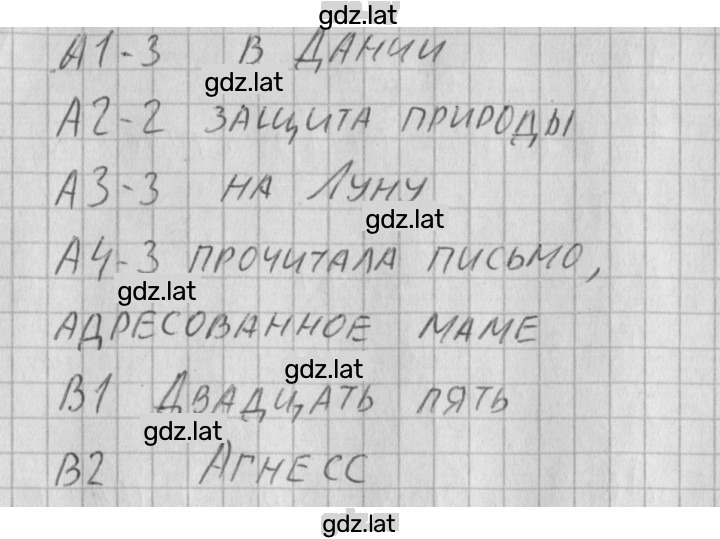 gdz.lat
А1-3 В Дании
gdz.lat
А2-2 защита природы
А3-3 на Луну
gdz.lat
А4-3 прочитала письмо,
gdz.lat
адресованное маме
gdz.lat
В1 Двадцать пять
gdz.lat
В2 Агнесс
gdz.lat